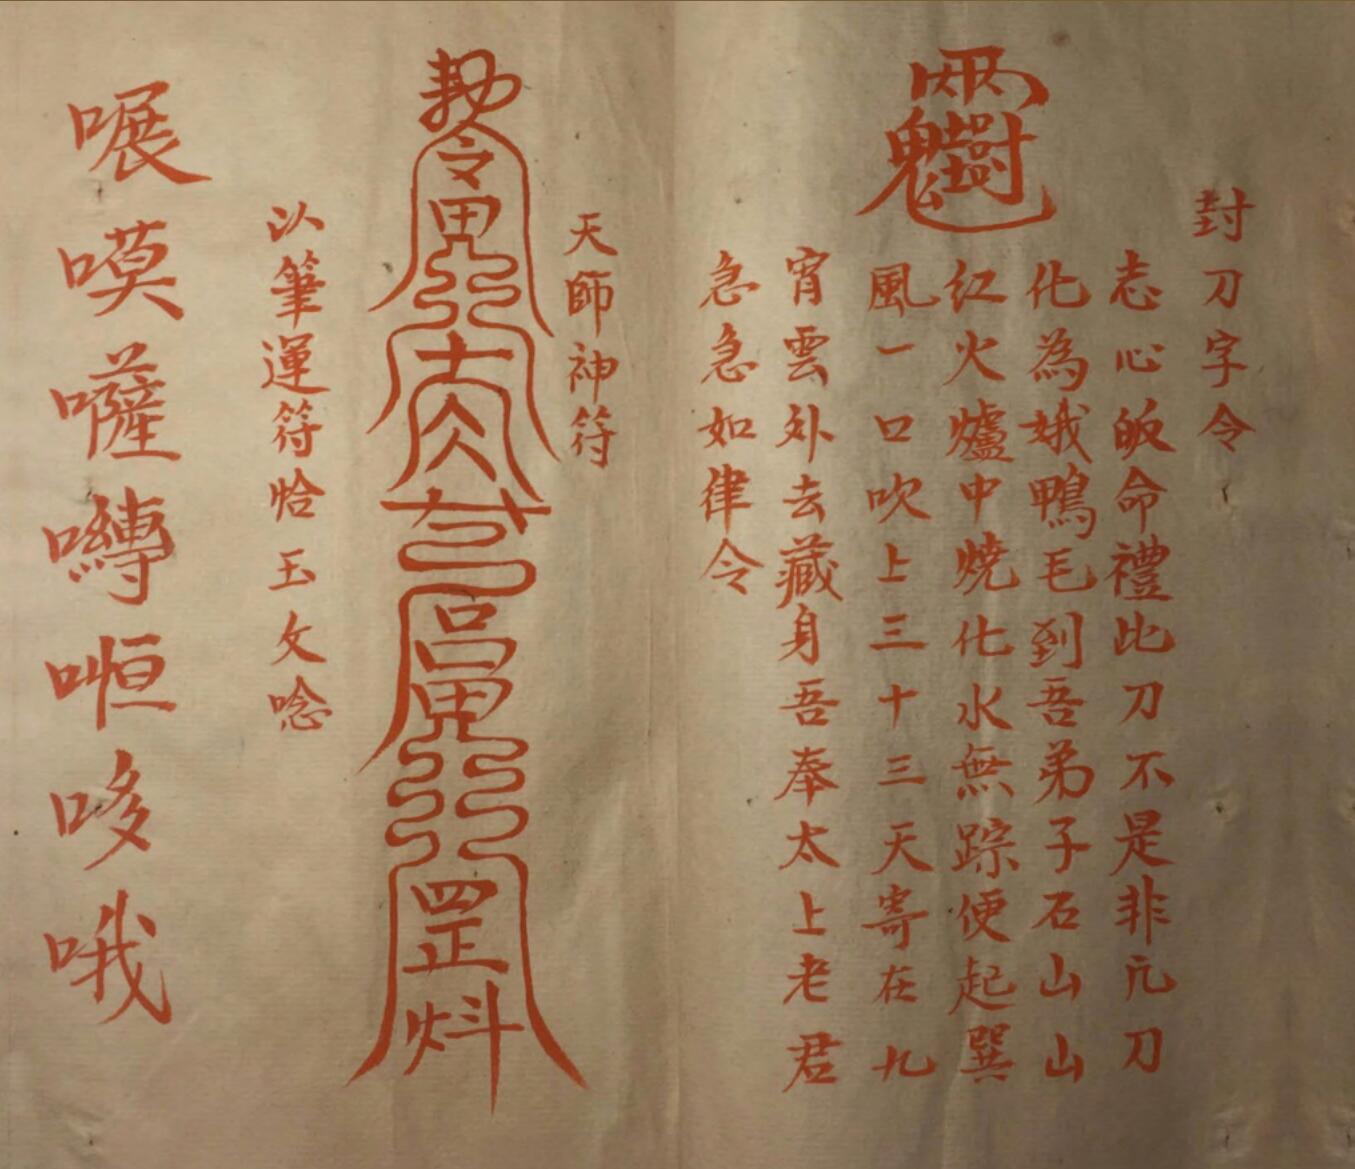 封刀字令
志心皈命禮比刀不是非凢刀
化為娥鴨毛到吾弟子石山山
紅火爐中燒化水無踪便起巽
風一口吹上三十三天寄在九
宵雲外去藏身吾奉太上老君
急急如律令
天師神符
勅令
罡
以筆運符恰玉文唸
㘆嗼囄囀𠹌哆哦